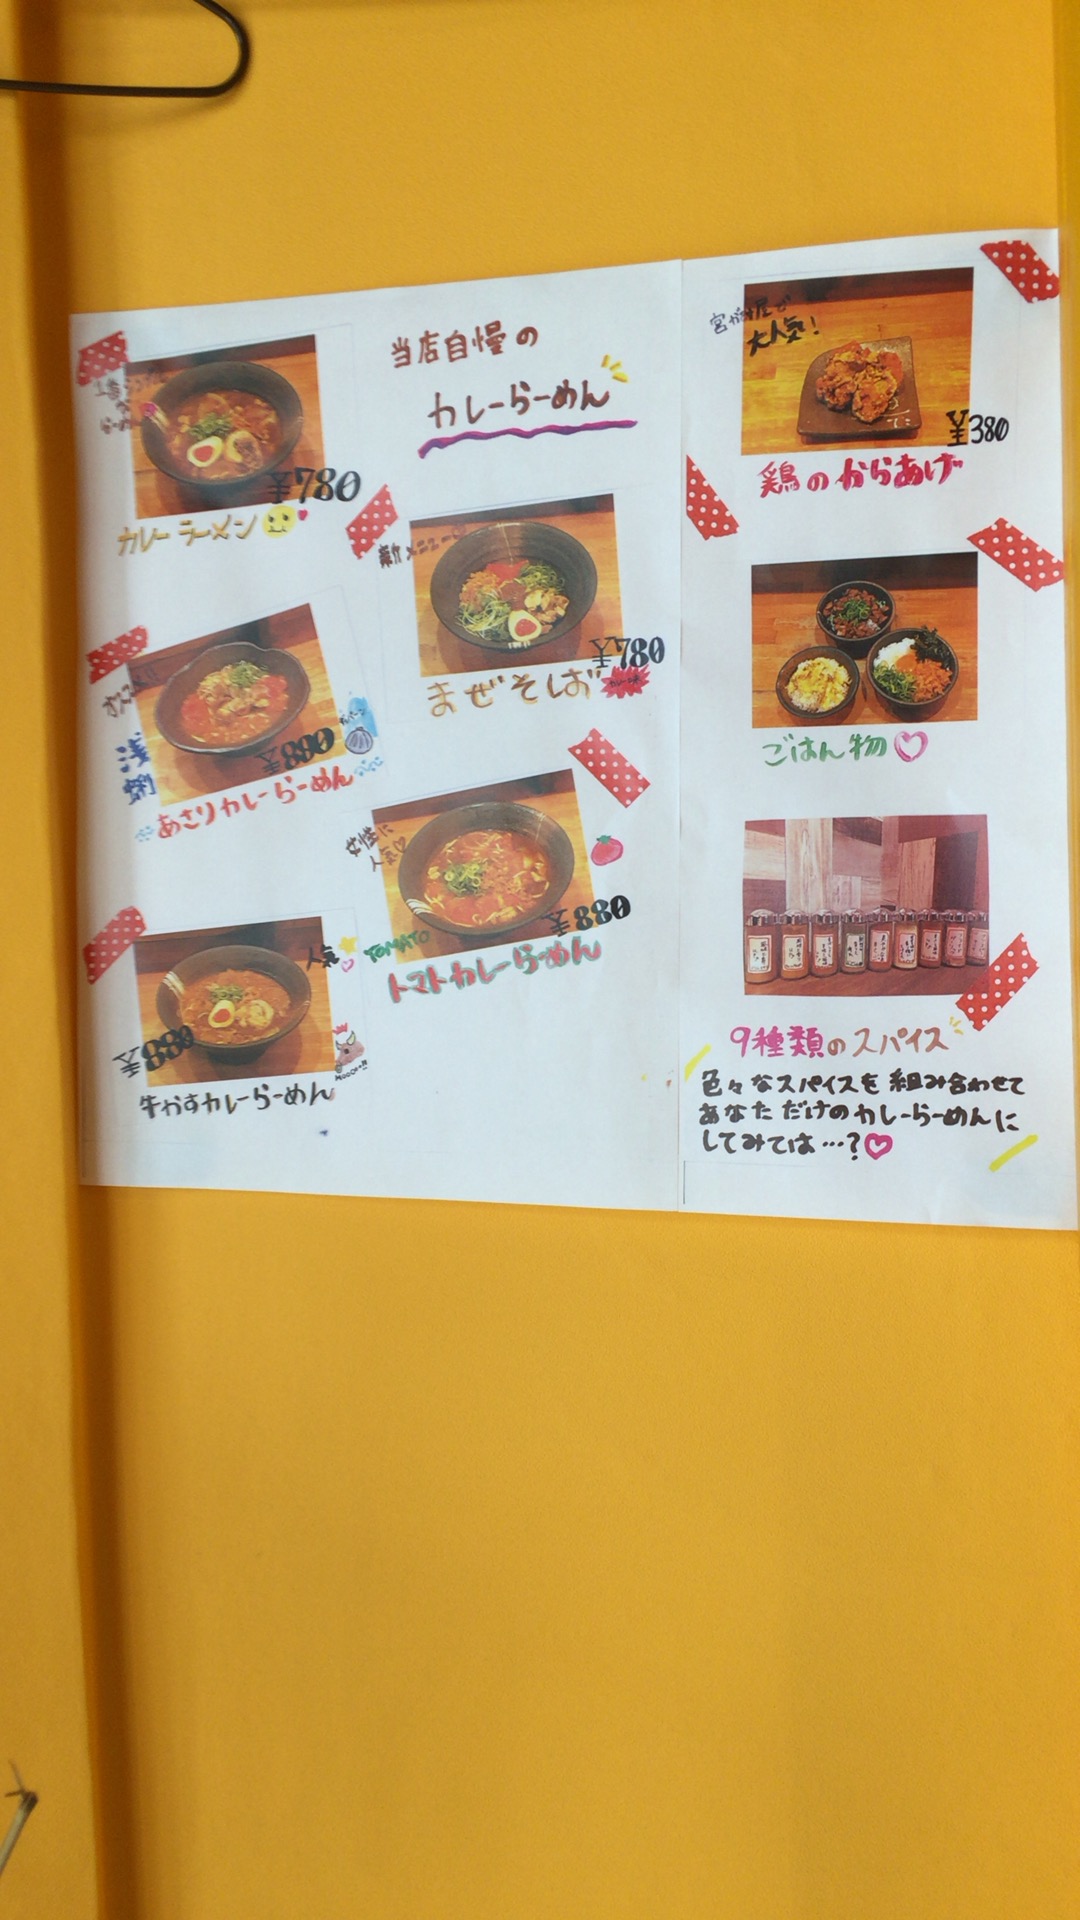 当店自慢の
カレーらーめん
一番シンプル
な
らーめん
¥780
カレーラーメン
¥780
まぜそば
カレー味
オススメ!
浅蜊
¥880
あさりカレーらーめん
女性に
人気♡
TOMATO
¥880
トマトカレーらーめん
人気
¥880
牛かすカレーらーめん
大人気!
¥380
鶏のからあげ
ごはん物♡
9種類のスパイス
色々なスパイスを組み合わせて
あなただけのカレーらーめんに
してみては…?♡